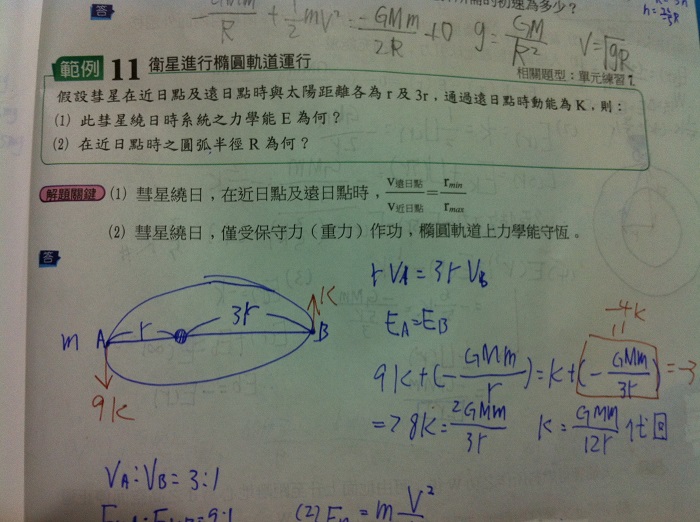 答
-GMm/R + 1/2 mV² = -GMm/2R + 0 g = GM/R² V = √gR
的初速為多少?
範例 11 衛星進行橢圓軌道運行
相關題型:單元練習7
假設彗星在近日點及遠日點時與太陽距離各為 r 及 3r,通過遠日點時動能為 K,則:
(1) 此彗星繞日時系統之力學能 E 為何?
(2) 在近日點時之圓弧半徑 R 為何?
解題關鍵 (1) 彗星繞日,在近日點及遠日點時,V遠日點/V近日點 = rmin/rmax
(2) 彗星繞日,僅受保守力(重力)作功,橢圓軌道上力學能守恆。
答
r VA = 3r VB
EA = EB
m A r 3r B K
9K
-4K
9K + (-GMm/r) = K + (-GMm/3r) = -3
=> 8K = 2GMm/3r K = GMm/12r 代回
VA : VB = 3 : 1
(2) Fn = m V²